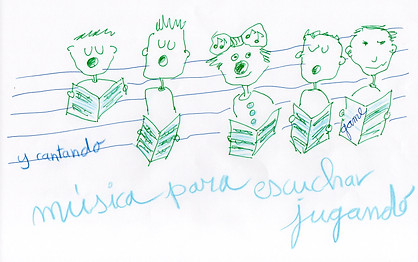 a
game
y cantando
música para escuchar
jugando